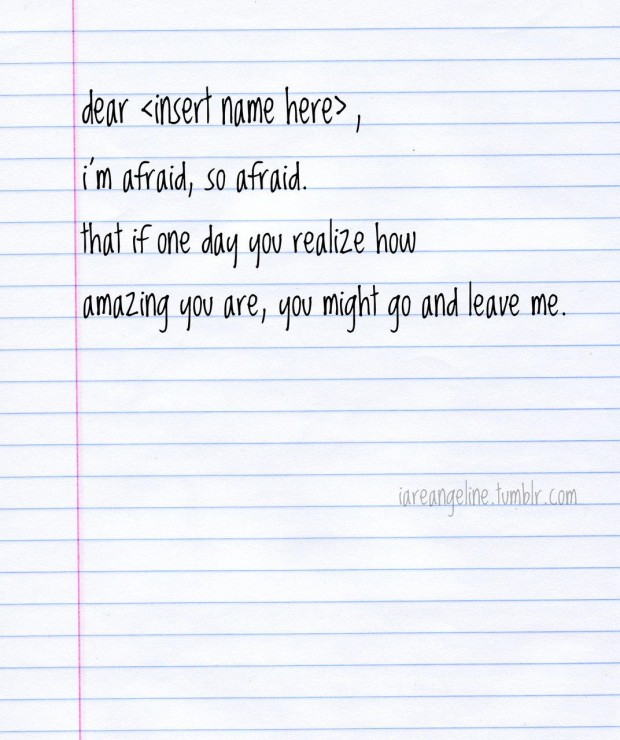 dear <insert name here> ,
i'm afraid, so afraid.
that if one day you realize how
amazing you are, you might go and leave me.
iareangeline.tumblr.com